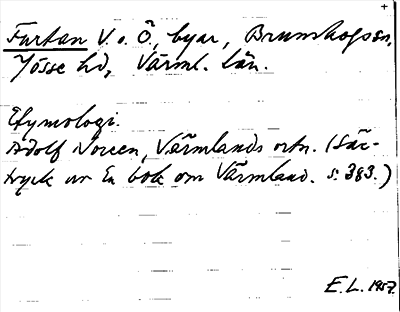 +
Furtan V. o. Ö., byar, Brunskogs sn,
Jösse hd, Värml. län.
Etymologi.
Adolf Noreen, Värmlands ortn. (Sär-
tryck ur En bok om Värmland. s. 383.)
E.L. 1957.